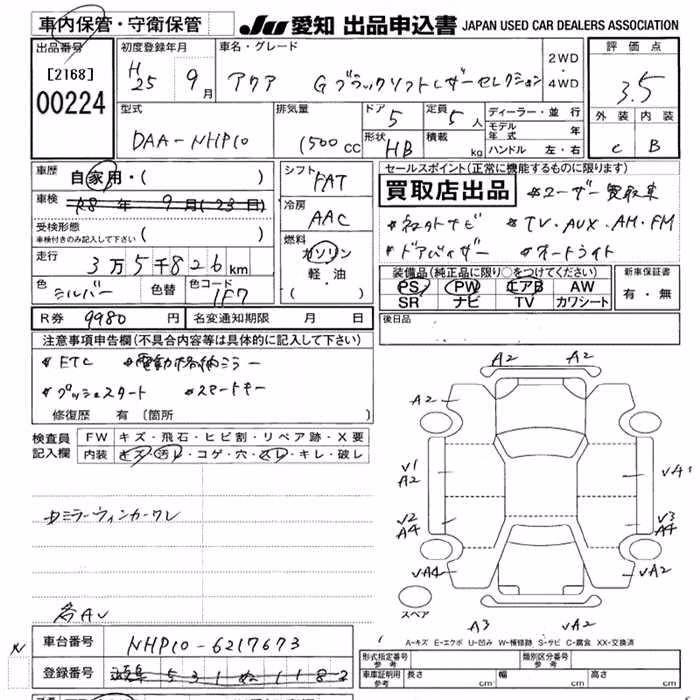 車内保管・守衛保管
JU 愛知 出品申込書 JAPAN USED CAR DEALERS ASSOCIATION
出品番号
[2168]
00224
初度登録年月
H25 9月
車名・グレード
アクア Gブラックソフトレザーセレクション
2WD・4WD
評価点
3.5
外装 内装
C B
型式
DAA-NHP10
排気量
1500 CC
ドア 5
定員 5人
形状 HB
積載 kg
ディーラー・並行
モデル年式 年
ハンドル 左・右
車歴 自家用・( )
車検 R8年 9月(23日)
受検形態
車検付きのみ記入して下さい ( )
走行 3万5千826km
色 シルバー 色替 色コード 1F7
シフト FAT
冷房 AAC
燃料 ガソリン
軽・油
( )
セールスポイント(正常に機能するものに限ります)
買取店出品 *ユーザー買取車
*ネオクトナビ *TV・AUX・AM・FM
*ドアバイザー *オートライト
装備品(純正品に限り○をつけてください)
PS PW エアB AW
SR ナビ TV カワシート
新車保証書
有・無
後日品
R券 9980円 名変通知期限 月 日
注意事項申告欄(不具合内容等は具体的に記入して下さい)
*ETC *電動格納ミラー
*プッシュスタート *スマートキー
修復歴 有(箇所 )
検査員記入欄
FW キズ・飛石・ヒビ割・リペア跡・X要
内装 キズ・汚レ・コゲ・穴・スレ・キレ・破レ
ミラーウィンカーワレ
各AU
A2 A2
A2
V1 A2
VA1
V2 A4
V3 A4
VA4 VA2
スペア
A3 A2
A-キズ E-エクボ U-凹み W-補修跡 S-サビ C-腐食 XX-交換済
車台番号 NHP10-6217673
登録番号 531 1182
形式指定番号 参考
類別区分番号 参考
車庫証明用 参考 長さ cm 幅 cm 高さ cm